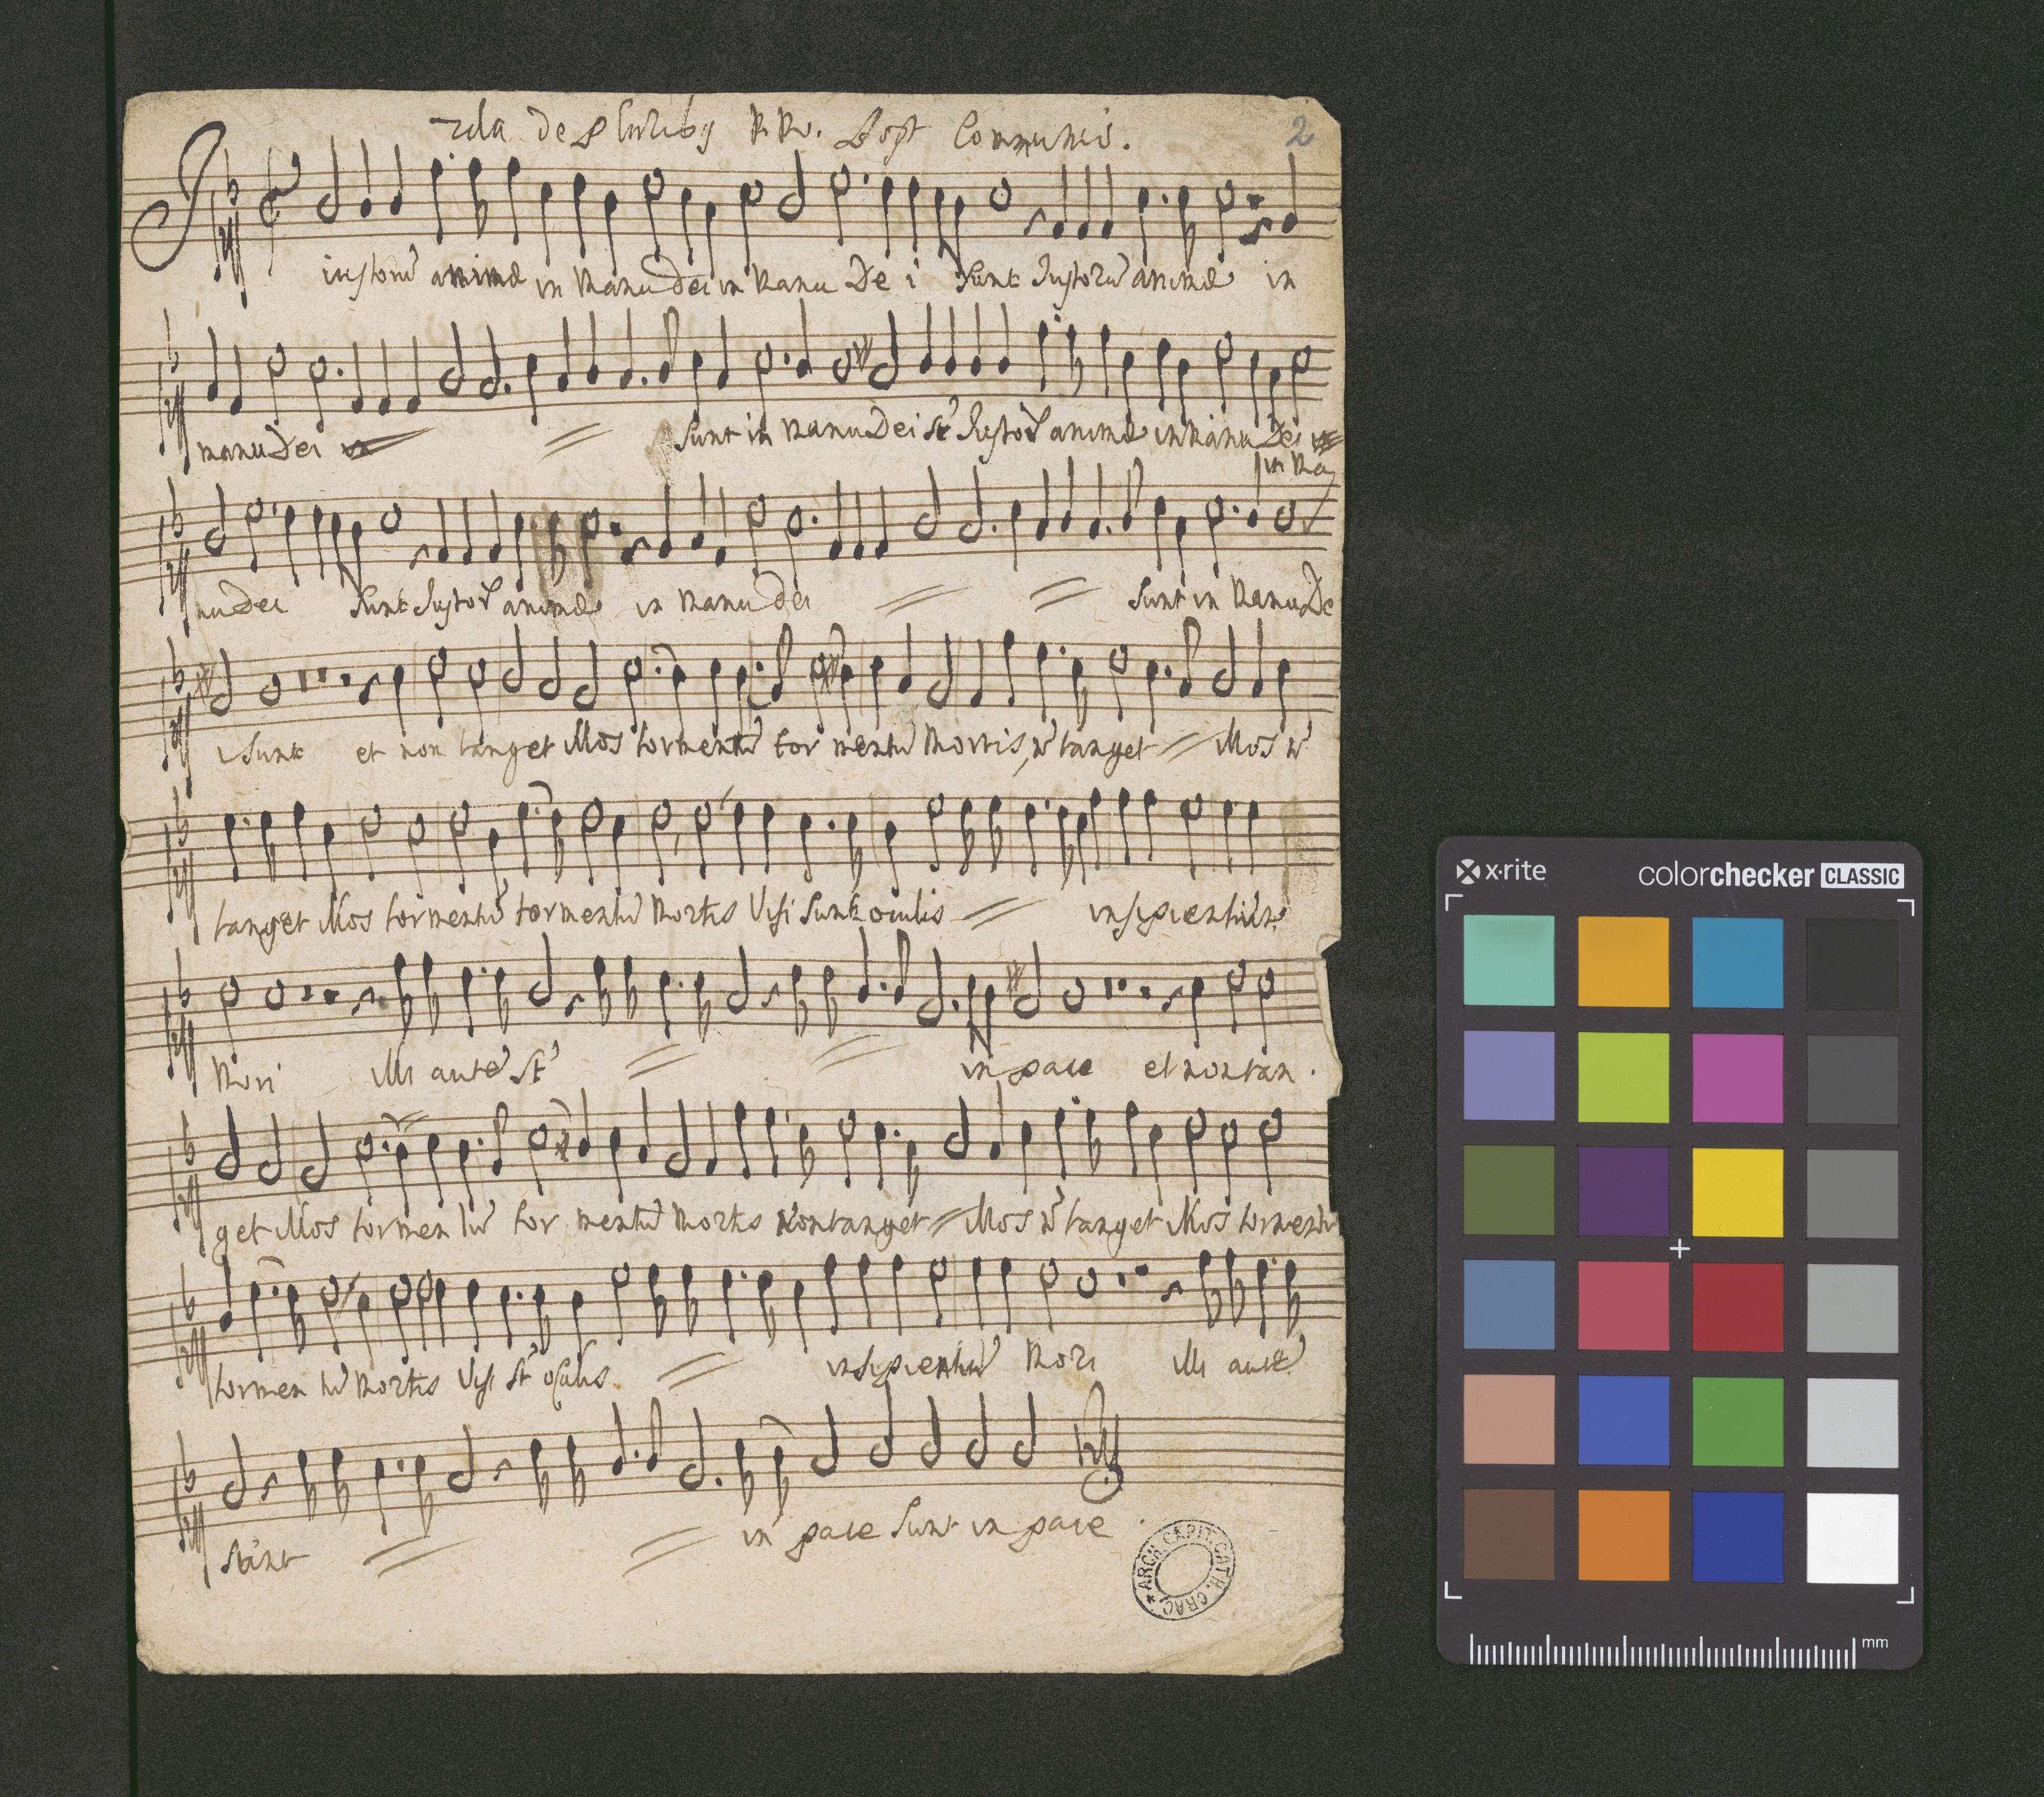 2da de pluribg MM. Post Communis.
2
iustorũ animæ in manu dei in manu De i sunt Justorũ animæ in
manu Dei sunt in manu Dei st Justor animæ in manu Dei
in ma
nu Dei sunt Justor animæ in manu dei sunt in manu De
i sunt et non tanget illos tormentũ tor mentũ mortis, nõ tanget illos nõ
tanget illos tormentũ tormentũ mortis Visi sunt oculis insipientiũ
mori illi autẽ st in pace et non tan.
get illos tormen tũ tor mentũ mortis Non tanget illos nõ tanget illos tormentũ
tormen tũ mortis Visi st oculis insipientiũ mori illi autẽ
sunt in pace sunt in pace.
ARCH. CAPIT. CATH. CRAC.
x·rite
colorchecker CLASSIC
mm